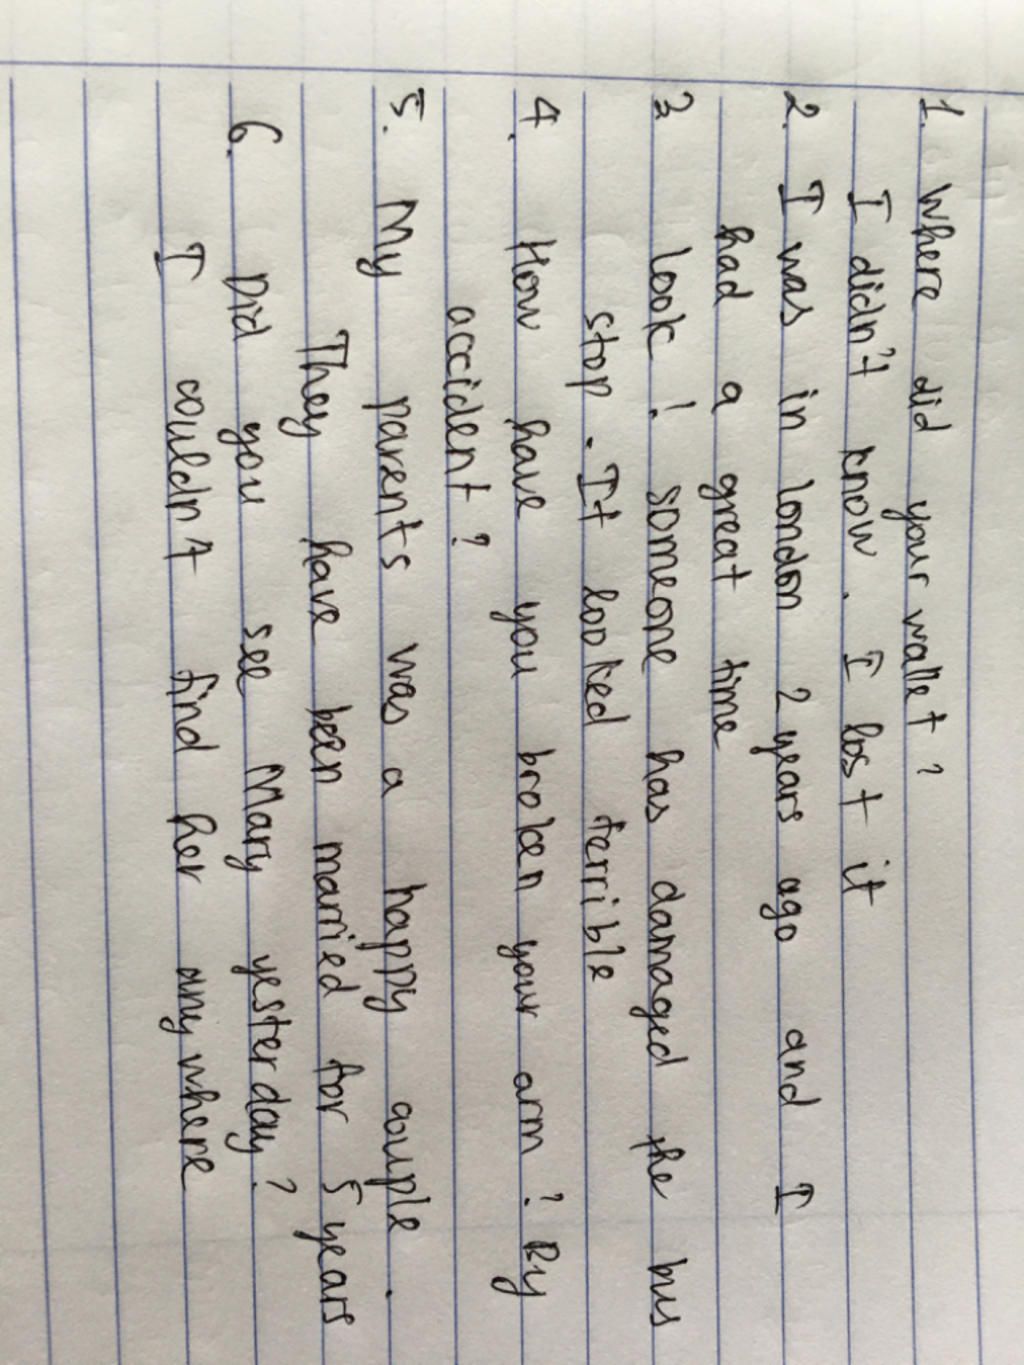 1. where did your wallet?
I didn't know. I lost it
2. I was in london 2 years ago and I
had a great time
3 look! someone has damaged the bus
stop. It looked terrible
4. How have you broken your arm? By
accident?
5. My parents was a happy couple.
They have been married for 5 years
6. Did you see Mary yesterday?
I couldn't find her anywhere